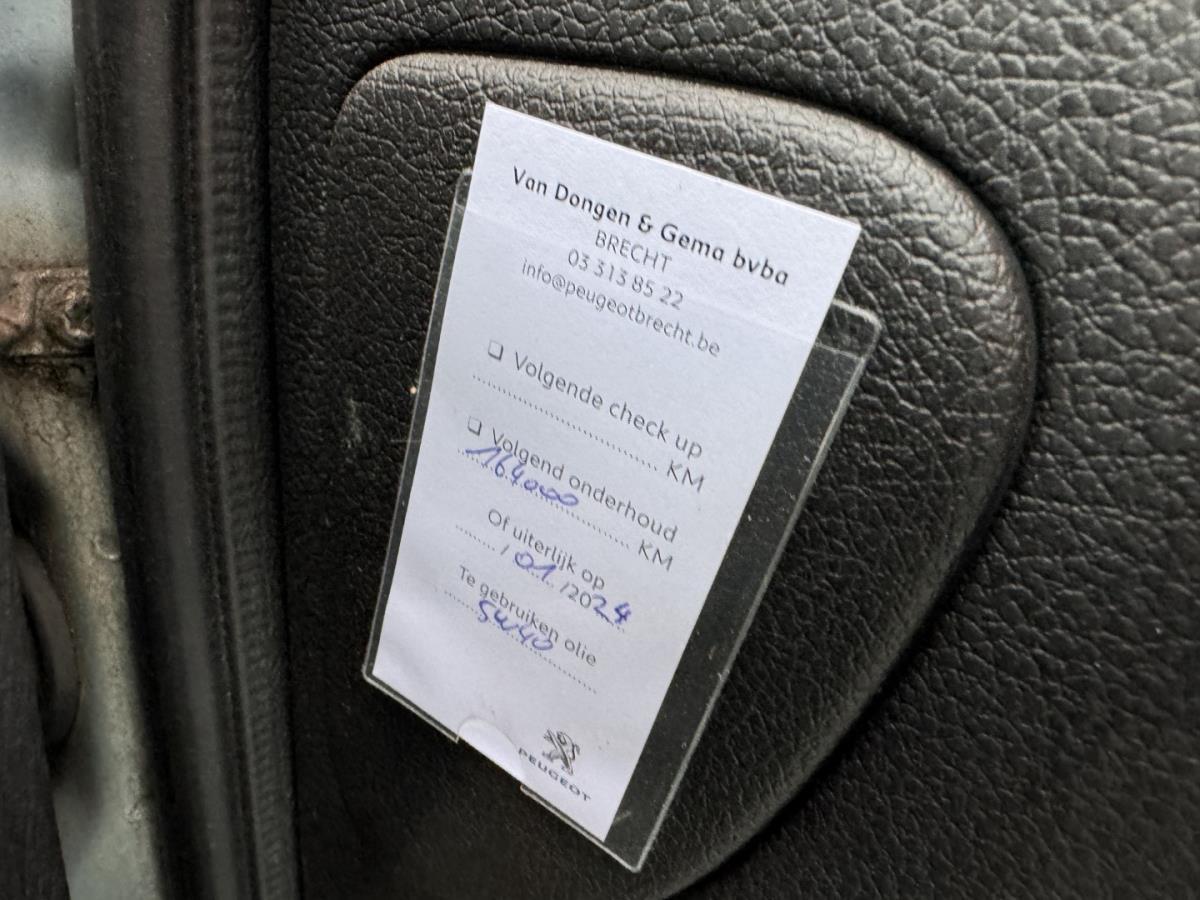 Van Dongen & Gema bvba
BRECHT
03 313 85 22
info@peugeotbrecht.be
❑ Volgende check up
........................................ KM
❑ Volgend onderhoud
164000 KM
Of uiterlijk op
......... / 01 /2024
Te gebruiken olie
5W40
PEUGEOT